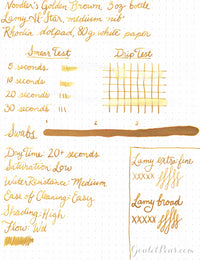 Noodler's Golden Brown, 3oz bottle
Lamy All-Star, medium nib
Rhodia dotpad, 80g white paper
Smear Test
Drip Test
5 seconds
10 seconds
20 seconds
30 seconds
Swabs
Dry Time: 20+ seconds
Saturation: Low
Water Resistance: Medium
Ease of Cleaning: Easy
Shading: High
Flow: Wet
Lamy extra fine
xxxxx
Lamy broad
xxxxx
GouletPens.com